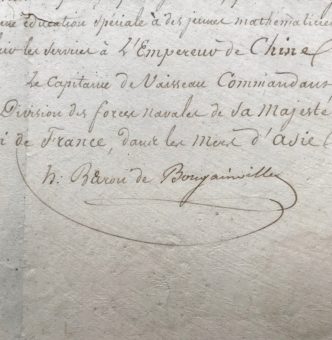 une éducation spéciale à des jeunes mathématicie
les services à L'Empereur de Chine
Le Capitaine de Vaisseau Commandant
Division des forces navales de sa Majesté
i de France, dans les Mers d'Asie
h. Baron de Bougainville